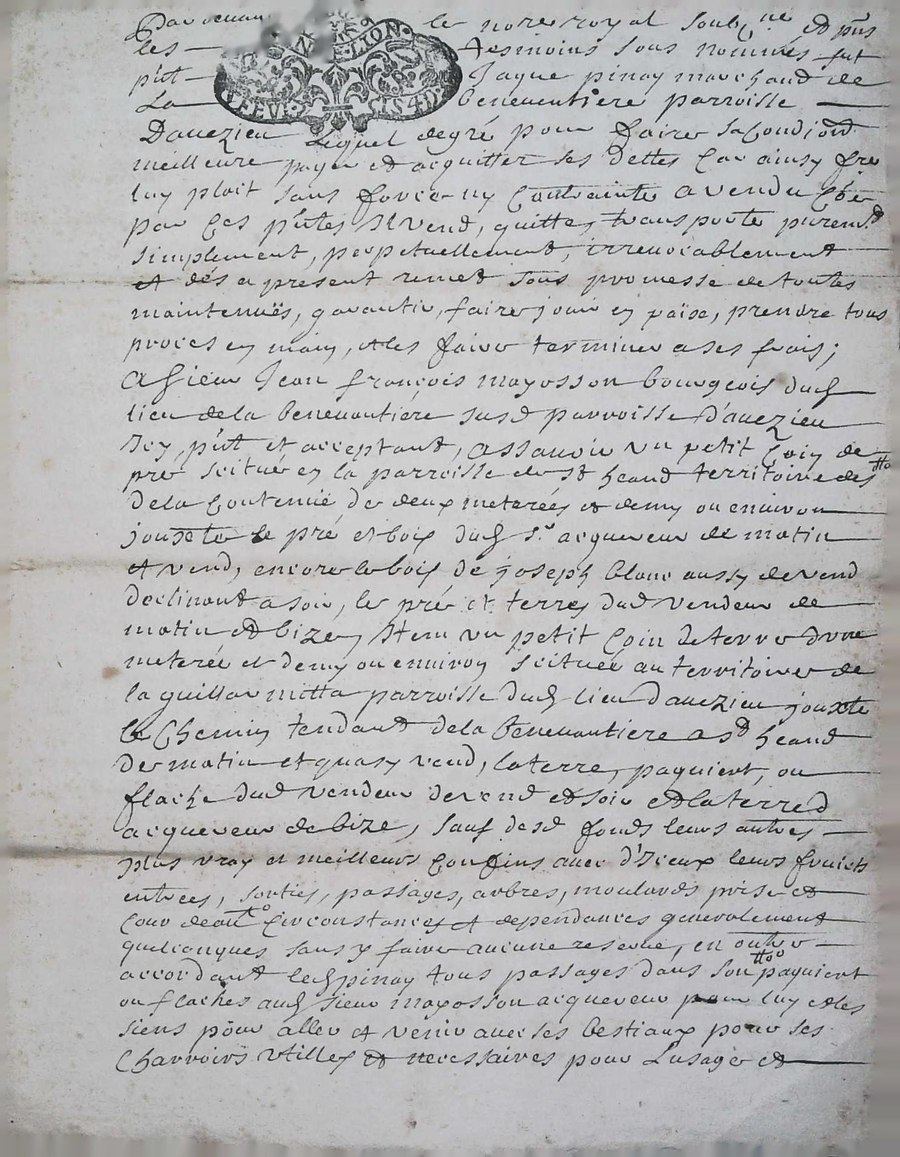 Pardevant le nore royal soubzne et pns
les tesmoins sous nommés fut
pnt Jaque pinay marchand de
La benevantiere parroisse
Davezieu Lequel de gré pour faire sa condion
meilleure payer et acquitter ses dettes car ainsy
luy plait sans force ny contrainte a vendu
par ces pntes Il vend, quitte, transporte puremt
simplement, perpetuellement, irrevocablement
et dés a present remet sous promesse de toutes
maintenuës, garantir, faire jouir en paise, prendre tous
proces en main, et les faire terminer a ses frais;
a sieur Jean françois mayosson bourgeois dud
lieu de la benevantiere susd parroisse d'avezieu
Icy pnt et acceptant, assavoir un petit coin de
pré scitué en la parroisse de st heand territoire des
de la contenuë de deux meterées et demy ou environ
jouxte le pré et bois dud sr acquereur de matin
et vend, encore le bois de joseph blanc aussy de vend
declinant a soir, les pré et terres dud vendeur de
matin et bize, Item un petit coin de terre d'une
meterée et demy ou environ scituée au territoire de
la guillarmitta parroisse dud lieu davezieu jouxte
le chemin tendant de la benevantiere a st heand
de matin et quasy vend, la terre, paquient, ou
flache dud vendeur de vend et soir et la terre d
acquereur de bize, sauf desd fonds leurs autres
plus vray et meilleurs confins avec d'Iceux leurs fruicts
entrées, sorties, passages, arbres, moulards prise et
cour deau circonstances et dependances generalement
quelconques sans y faire aucune reserve, en outre
accordant led pinay tous passages dans son paquient
ou flaches aud sieur mayosson acquereur pour luy et les
siens pour aller et venir avec ses bestiaux pour ses
charroirs utilles et necessaires pour Lusage et